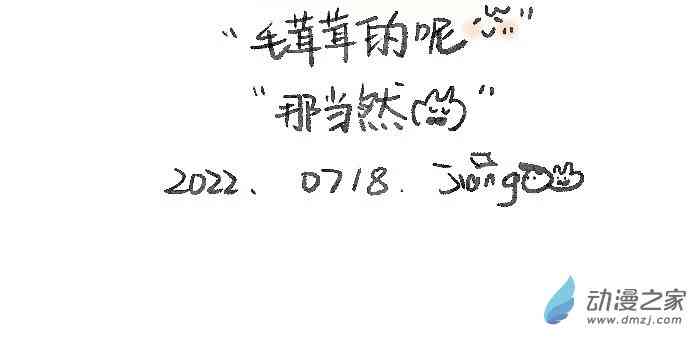 “毛茸茸的呢”
“那当然”
2022、0718.
动漫之家
www.dmzj.com